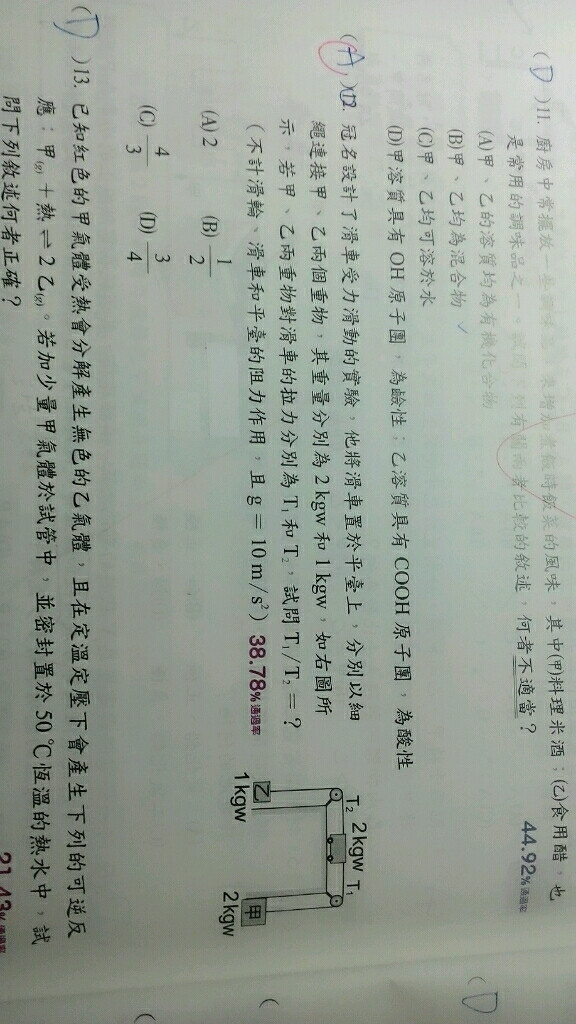 (D)11. 廚房中常擺放一些調味品，來增加煮飯時飯菜的風味，其中(甲)料理米酒；(乙)食用醋，也
是常用的調味品之一，　　列有關兩者比較的敘述，何者不適當？ 44.92%通過率
(A)甲、乙的溶質均為有機化合物
(B)甲、乙均為混合物
(C)甲、乙均可溶於水
(D)甲溶質具有OH原子團，為鹼性；乙溶質具有COOH原子團，為酸性
(A)12. 冠名設計了滑車受力滑動的實驗，他將滑車置於平臺上，分別以細
繩連接甲、乙兩個重物，其重量分別為2 kgw和1 kgw，如右圖所
示，若甲、乙兩重物對滑車的拉力分別為T₁和T₂，試問T₁/T₂＝？
(不計滑輪、滑車和平臺的阻力作用，且g＝10 m/s²) 38.78%通過率
(A) 2 (B) 1/2
(C) 4/3 (D) 3/4
T₂ 2 kgw T₁
乙 甲
1 kgw 2 kgw
(D)13. 已知紅色的甲氣體受熱會分解產生無色的乙氣體，且在定溫定壓下會產生下列的可逆反
應：甲(g)＋熱⇌2乙(g)。若加少量甲氣體於試管中，並密封置於50℃恆溫的熱水中，試
問下列敘述何者正確？ 21.43%通過率
(D
(
(